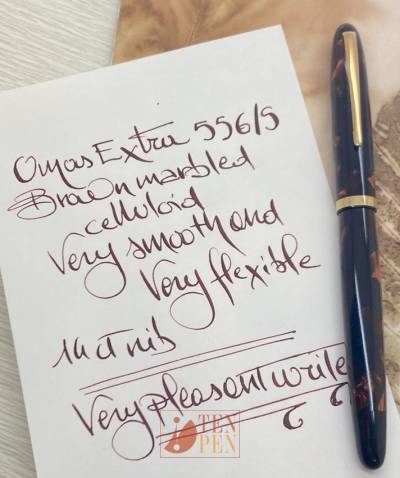 Omas Extra 556/S
Brown marbled
celluloid
Very smooth and
Very flexible
14 ct nib
Very pleasant write
TEN
PEN